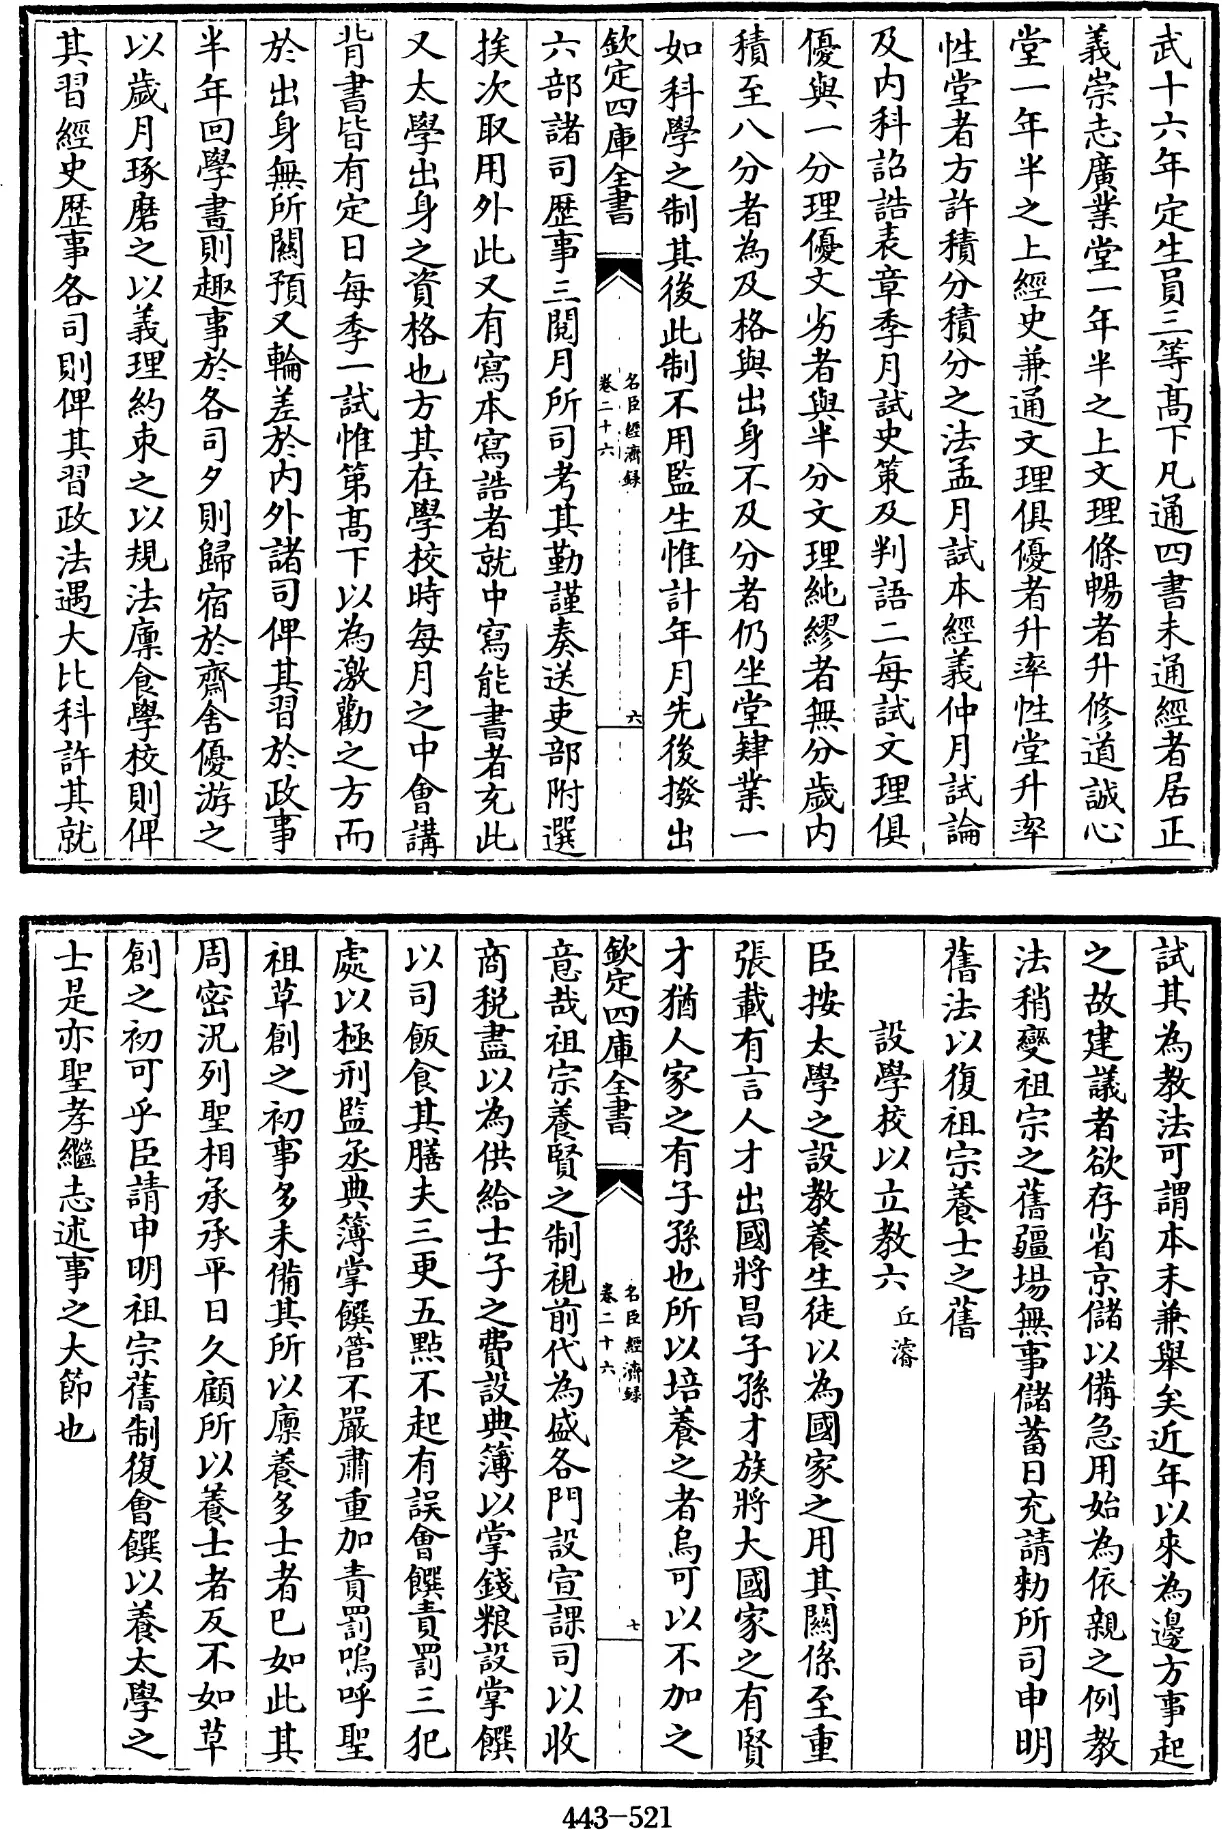 武十六年定生員三等髙下凡通四書未通經者居正
義崇志廣業堂一年半之上文理條暢者升修道誠心
堂一年半之上經史兼通文理俱優者升率性堂升率
性堂者方許積分積分之法孟月試本經義仲月試論
及内科詔誥表章季月試史策及判語二每試文理俱
優與一分理優文劣者與半分文理純繆者無分歳内
積至八分者為及格與出身不及分者仍坐堂肄業一
如科學之制其後此制不用監生惟計年月先後撥出
欽定四庫全書
名臣經濟録
卷二十六
六
六部諸司歴事三閱月所司考其勤謹奏送吏部附選
挨次取用外此又有寫本寫誥者就中寫能書者充此
又太學出身之資格也方其在學校時每月之中會講
背書皆有定日每季一試惟第髙下以為激勸之方而
於出身無所關預又輪差於内外諸司俾其習於政事
半年回學晝則趣事於各司夕則歸宿於齋舍優游之
以歳月琢磨之以義理約束之以規法廪食學校則俾
其習經史歴事各司則俾其習政法遇大比科許其就
試其為教法可謂本末兼舉矣近年以來為邊方事起
之故建議者欲存省京儲以備急用始為依親之例教
法稍變祖宗之舊疆場無事儲蓄日充請勅所司申明
舊法以復祖宗養士之舊
設學校以立教六 丘濬
臣按太學之設教養生徒以為國家之用其關係至重
張載有言人才出國將昌子孫才族將大國家之有賢
才猶人家之有子孫也所以培養之者烏可以不加之
欽定四庫全書
名臣經濟録
卷二十六
七
意哉祖宗養賢之制視前代為盛各門設宣課司以收
商税盡以為供給士子之費設典簿以掌錢粮設掌饌
以司飯食其膳夫三更五點不起有誤會饌責罰三犯
處以極刑監丞典簿掌饌管不嚴肅重加責罰嗚呼聖
祖草創之初事多未備其所以廪養多士者已如此其
周密況列聖相承承平日久顧所以養士者反不如草
創之初可乎臣請申明祖宗舊制復會饌以養太學之
士是亦聖孝繼志述事之大節也
443-521